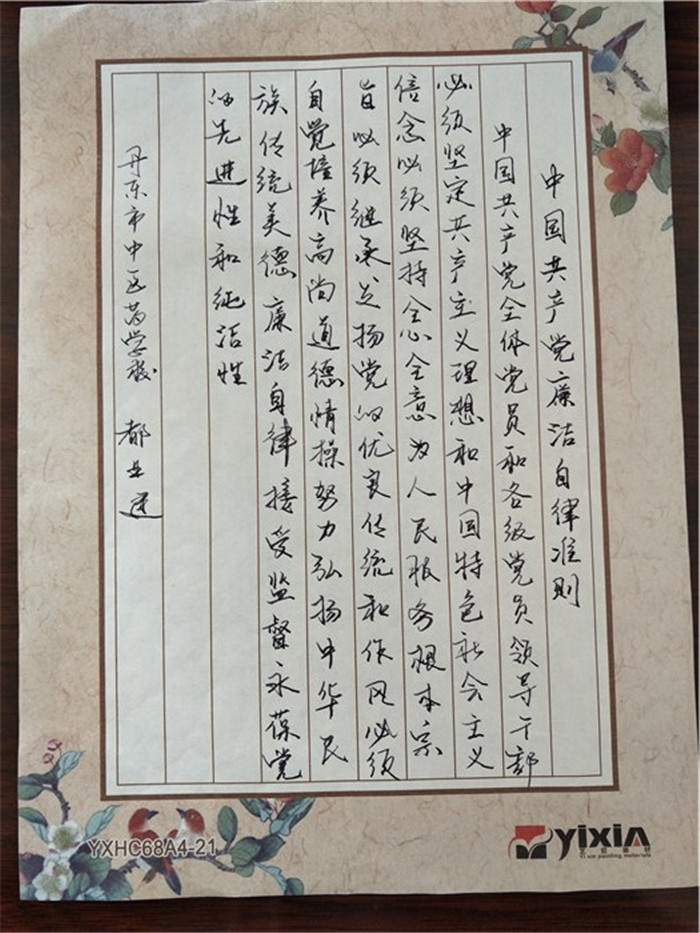 中国共产党廉洁自律准则
中国共产党全体党员和各级党员领导干部
必须坚定共产主义理想和中国特色社会主义
信念必须坚持全心全意为人民服务根本宗
旨必须继承发扬党的优良传统和作风必须
自觉培养高尚道德情操努力弘扬中华民
族传统美德廉洁自律接受监督永葆党
的先进性和纯洁性
丹东市中医药学校 都
YXHC68A4-21
yixin
Yi xin painting materials